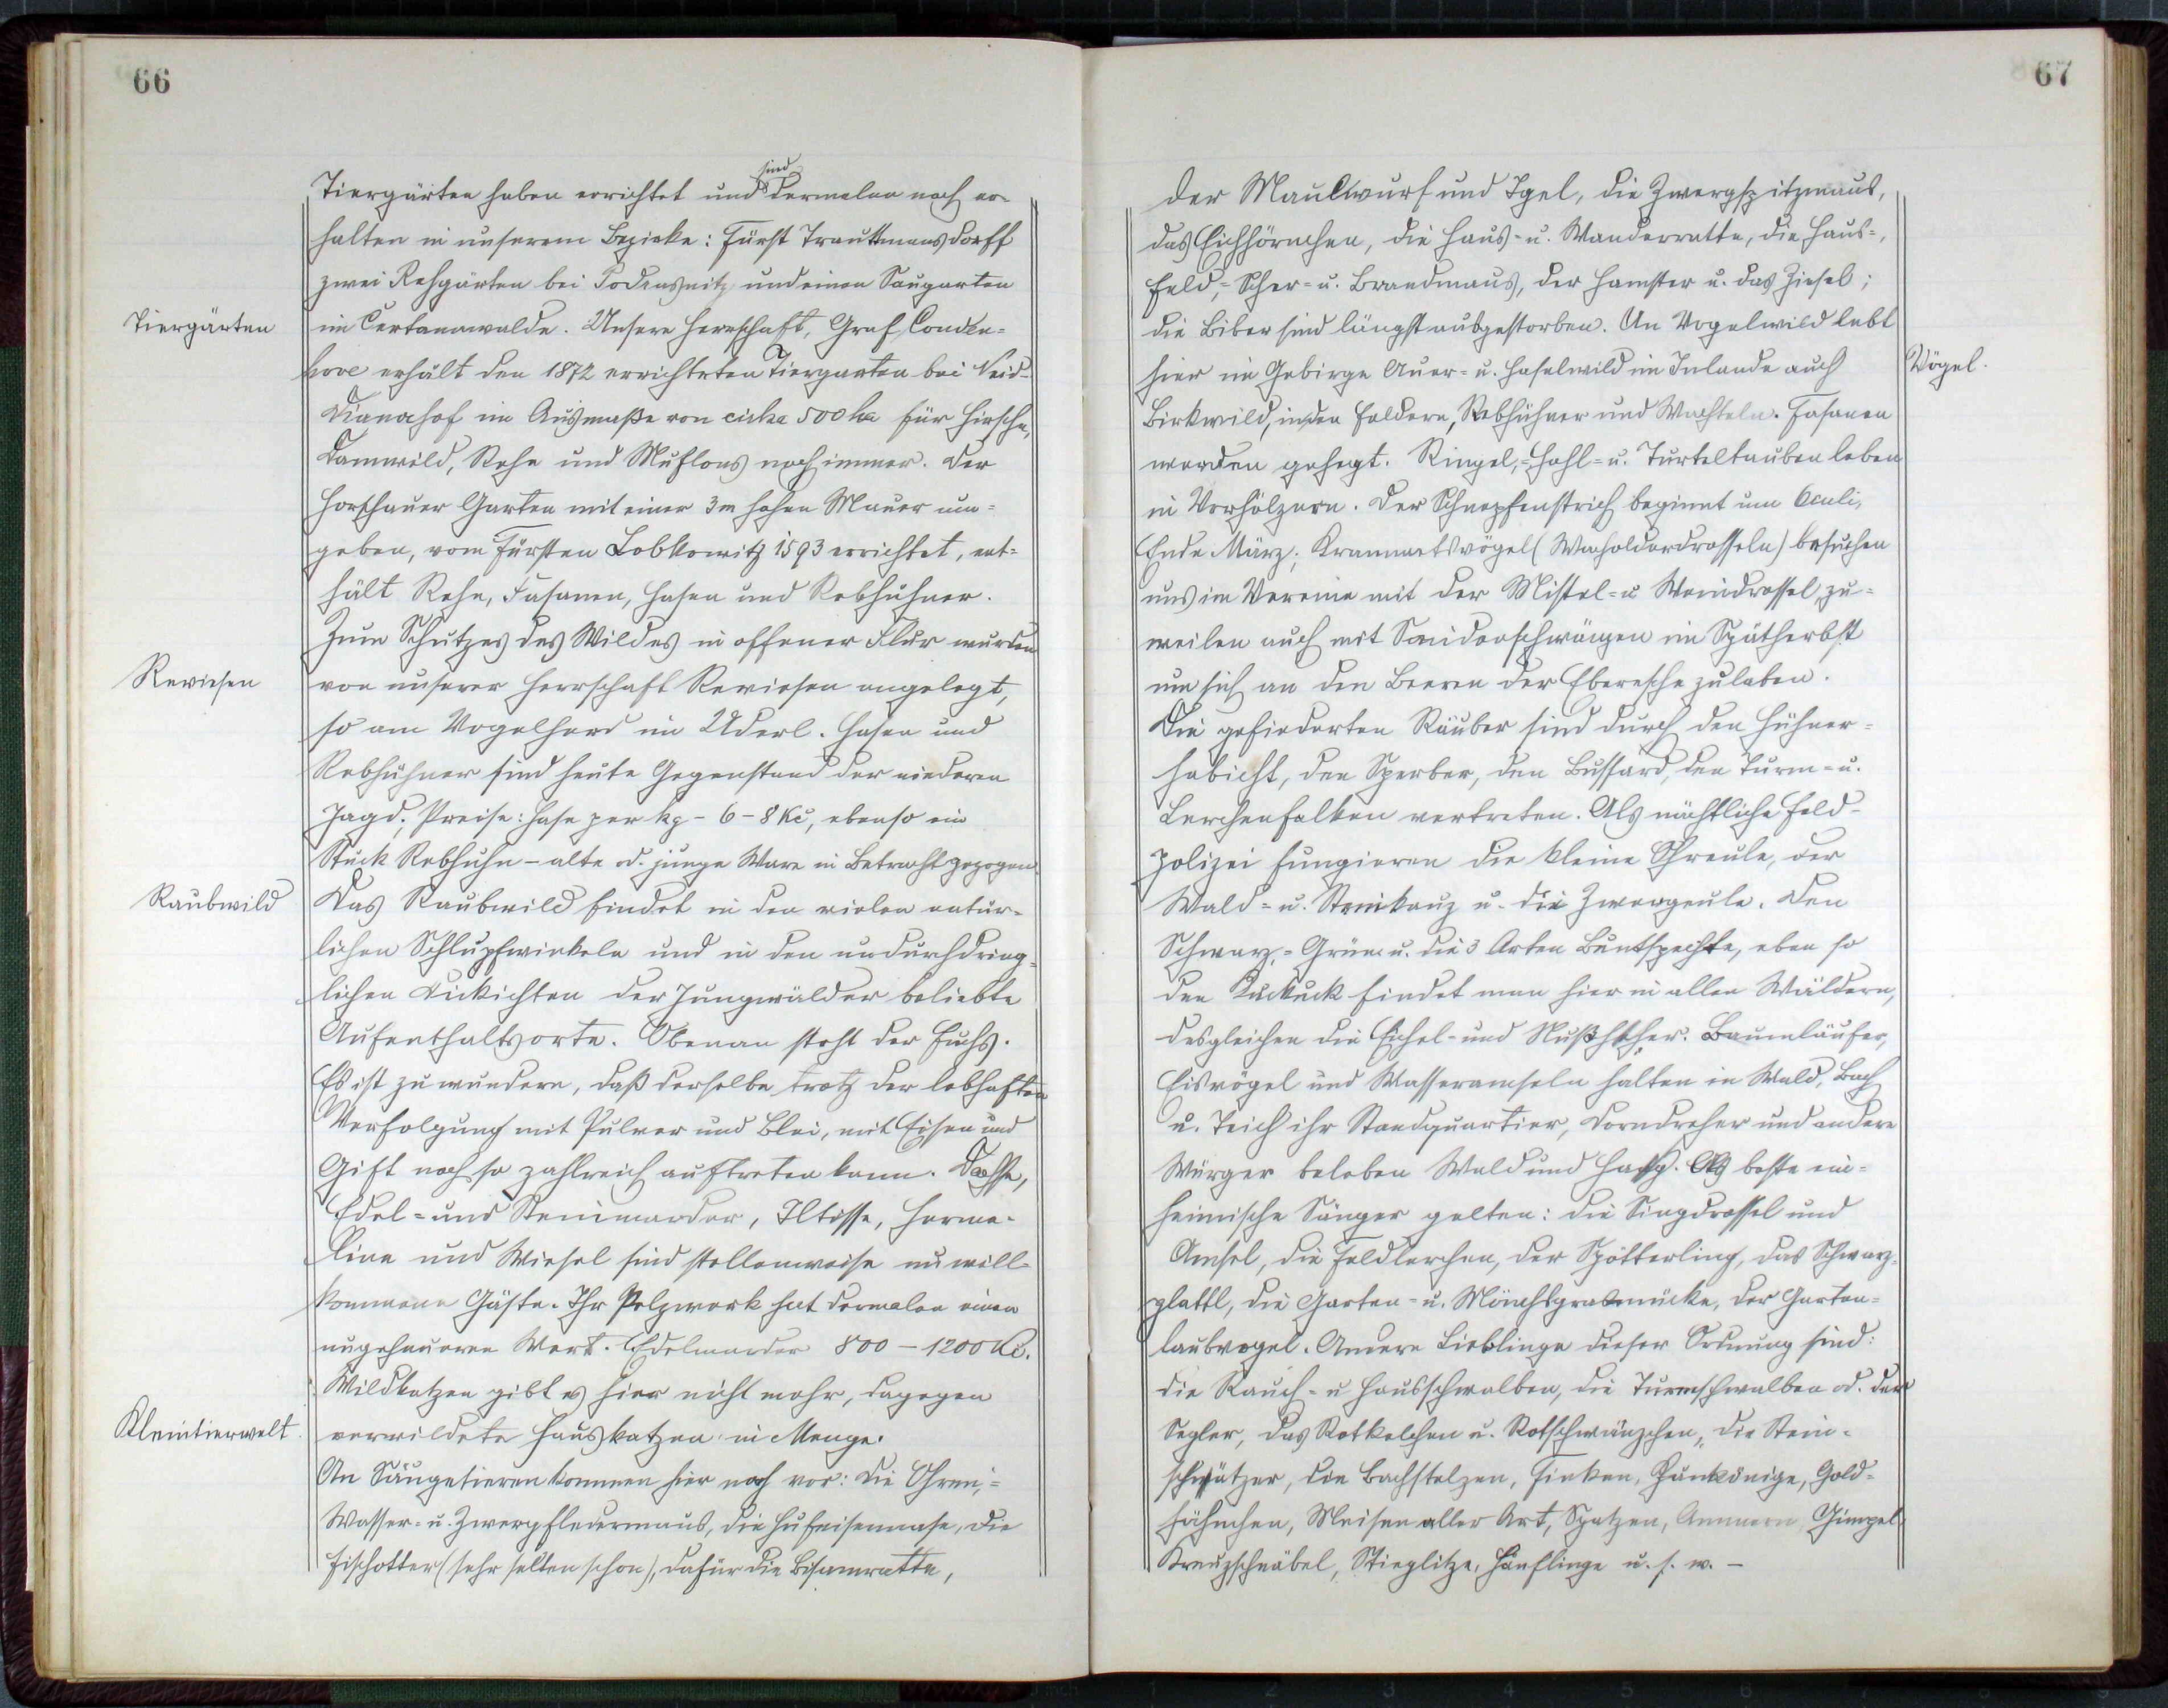 66
sind
Tiergärten haben errichtet und dermalen noch er-
halten in unserem Bezirke: Fürst Trauttmansdorff
zwei Rehgärten bei Podrasnitz und einen Saugarten
Tiergärten
im Certanawalde. Unsere Herrschaft, Graf Couden-
hove erhält den 1872 errichteten Tiergarten bei Neid-
Dianahof im Ausmaße von cirka 500 ha für Hirsche,
Damwild, Rehe und Muflons noch immer. Der
Horschauer Garten mit einer 3 m hohen Mauer um-
geben, vom Fürsten Lobkowitz 1593 errichtet, ent-
hält Rehe, Fasanen, Hasen und Rebhühner.
Zum Schutzes des Wildes in offener Flur wurden
Reviesen
von unserer Herrschaft Reviesen angelegt,
so am Vogelherd im Uderl. Hasen und
Rebhühner sind heute Gegenstand der niederen
Jagd; Preise: Hase per kg - 6 - 8 Kč, ebenso ein
Stück Rebhuhn - alte od. junge Ware in Betracht gezogen.
Raubwild
Das Raubwild findet in den vielen natür-
lichen Schlupfwinkeln und in den undurchdring-
lichen Dickichten der Jungwälder beliebte
Aufenthaltsorte. Obenan steht der Fuchs.
Es ist zu wundern, daß derselbe trotz der lebhaften
Verfolgung mit Pulver und Blei, mit Eisen und
Gift noch so zahlreich auftreten kann. Dachse,
Edel- und Steinmarder, Iltisse, Herme-
line und Wiesel sind stellenweise unwill-
kommene Gäste. Ihr Pelzwerk hat dermalen einen
ungeheueren Wert. Edelmarder 800 - 1200 Kč.
Wildkatzen gibt es hier nicht mehr, dagegen
Kleintierwelt.
verwildete Hauskatzen in Menge.
An Säugetieren kommen hier noch vor: Die Ohren,-
Wasser- u. Zwergfledermaus, die Hufeisennase, die
Fischotter (sehr selten schon), dafür die Bisamratte,
67
der Maulwurf und Igel, die Zwergspitzmaus,
das Eichhörnchen, die Haus- u. Wanderratte, die Haus-,
Feld,- Scher- u. Brandmaus, der Hamster u. das Ziesel;
die Biber sind längst ausgestorben. An Vogelwild lebt
Vögel.
hier im Gebirge Auer- u. Haselwild im Inlande auch
Birkwild, in den Feldern, Rebhühner und Wachteln. Fasanen
werden gehegt. Ringel,- Hohl- u. Turteltauben leben
in Vorhölzern. Der Schnepfenstrich beginnt um Oculi,
Ende März; Krammetsvögel (Wacholderdrosseln) besuchen
uns im Vereine mit der Mistel- u Weindrossel, zu-
weilen auch mit Seidenschwänzen im Spätherbst
um sich an den Beeren der Eberesche zulaben.
Die gefiederten Räuber sind durch den Hühner-
habicht, den Sperber, den Bussard, den Turm- u.
Lerchenfalken vertreten. Als nächtliche Feld-
polizei fungieren die kleine Ohreule, der
Wald- u. Steinkauz u. die Zwergeule. Den
Schwarz,- Grün- u. die 3 Arten Buntspechte, eben so
den Kuckuck findet man hier in allen Wäldern,
desgleichen die Eichel- und Nußhäher. Baumläufer,
Eisvögel und Wasseramseln halten in Wald, Bach
u. Teich ihr Standquartier, Dorndreher und andere
Würger beleben Wald und Hag. Als beste ein-
heimische Sänger gelten: die Singdrossel und
Amsel, die Feldlerchen, der Spötterling, das Schwarz-
plattl, die Garten- u. Mönchsgrasmücke, der Garten-
laubvogel. Andere Lieblinge dieser Ordnung sind:
die Rauch- u Hausschwalben, die Turmschwalben od. der
Segler, das Rotkelchen u. Rotschwänzchen, die Stein-
schmätzer, die Bachstelzen, Finken, Zaunkönige, Gold-
hähnchen, Meisen aller Art, Spatzen, Ammern, Gimpel
Kreuzschnäbel, Stieglitze, Hänflinge u. s. w. -